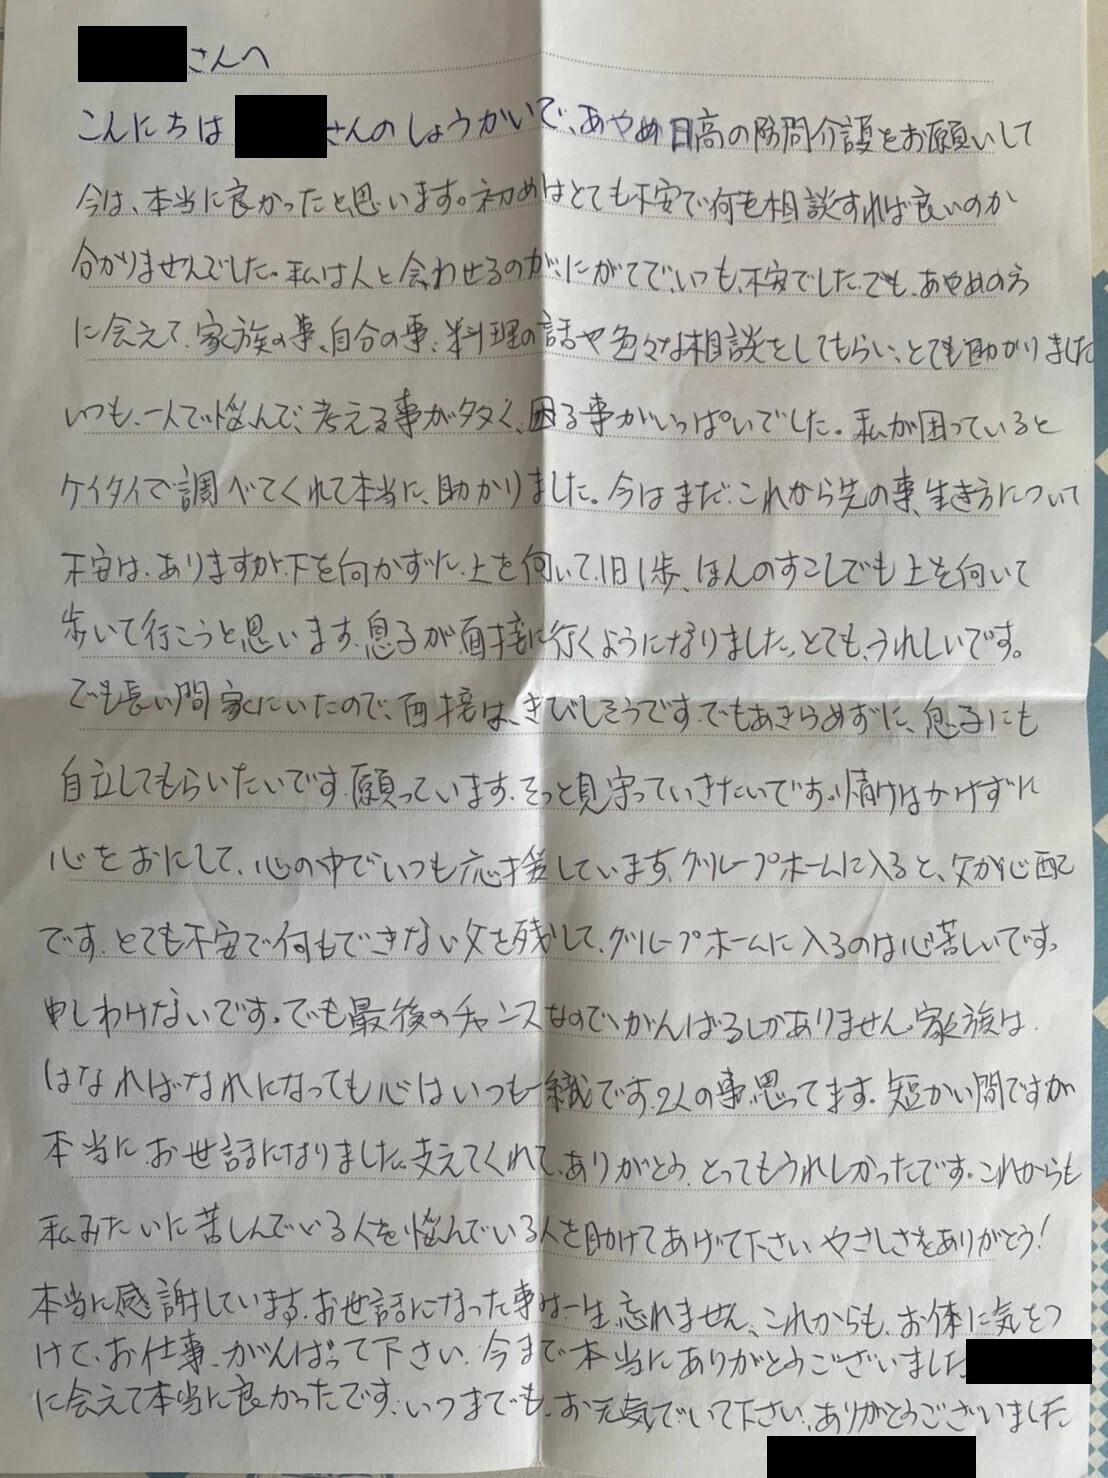 さんへ
こんにちは さんのしょうかいで、あやめ日高の訪問介護をお願いして
今は、本当に良かったと思います。初めはとても不安で何を相談すれば良いのか
分かりませんでした。私は人と会わせるのが、にがてで、いつも、不安でした。でも、あやめの方
に会えて、家族の事、自分の事、料理の話や色々な相談をしてもらい、とても助かりました
いつも、一人で悩んで、考える事が多く、困る事がいっぱいでした。私が困っていると
ケイタイで調べてくれて本当に、助かりました。今はまだ、これから先の事、生き方について
不安は、ありますが、下を向かずに、上を向いて、1日1歩、ほんのすこしでも上を向いて
歩いて行こうと思います。息子が面接に行くようになりました。とても、うれしいです。
でも長い間家にいたので、面接は、きびしそうです。でもあきらめずに、息子にも
自立してもらいたいです。願っています。そっと見守っていきたいです。情けはかけずに
心をおにして、心の中でいつも応援しています。グループホームに入ると、父が心配
です。とても不安で何もできない父を残して、グループホームに入るのは心苦しいです。
申しわけないです。でも最後のチャンスなので、がんばるしかありません。家族は、
はなればなれになっても心はいつも一緒です。2人の事、思ってます。短かい間ですが
本当にお世話になりました。支えてくれて、ありがとう、とってもうれしかったです。これからも
私みたいに苦しんでいる人を、悩んでいる人を助けてあげて下さい やさしさをありがとう!
本当に感謝しています。お世話になった事は一生、忘れません、これからも、お体に気をつ
けて、お仕事、がんばって下さい。今まで本当にありがとうございました
に会えて本当に良かったです。いつまでも、お元気でいて下さい、ありがとうございました